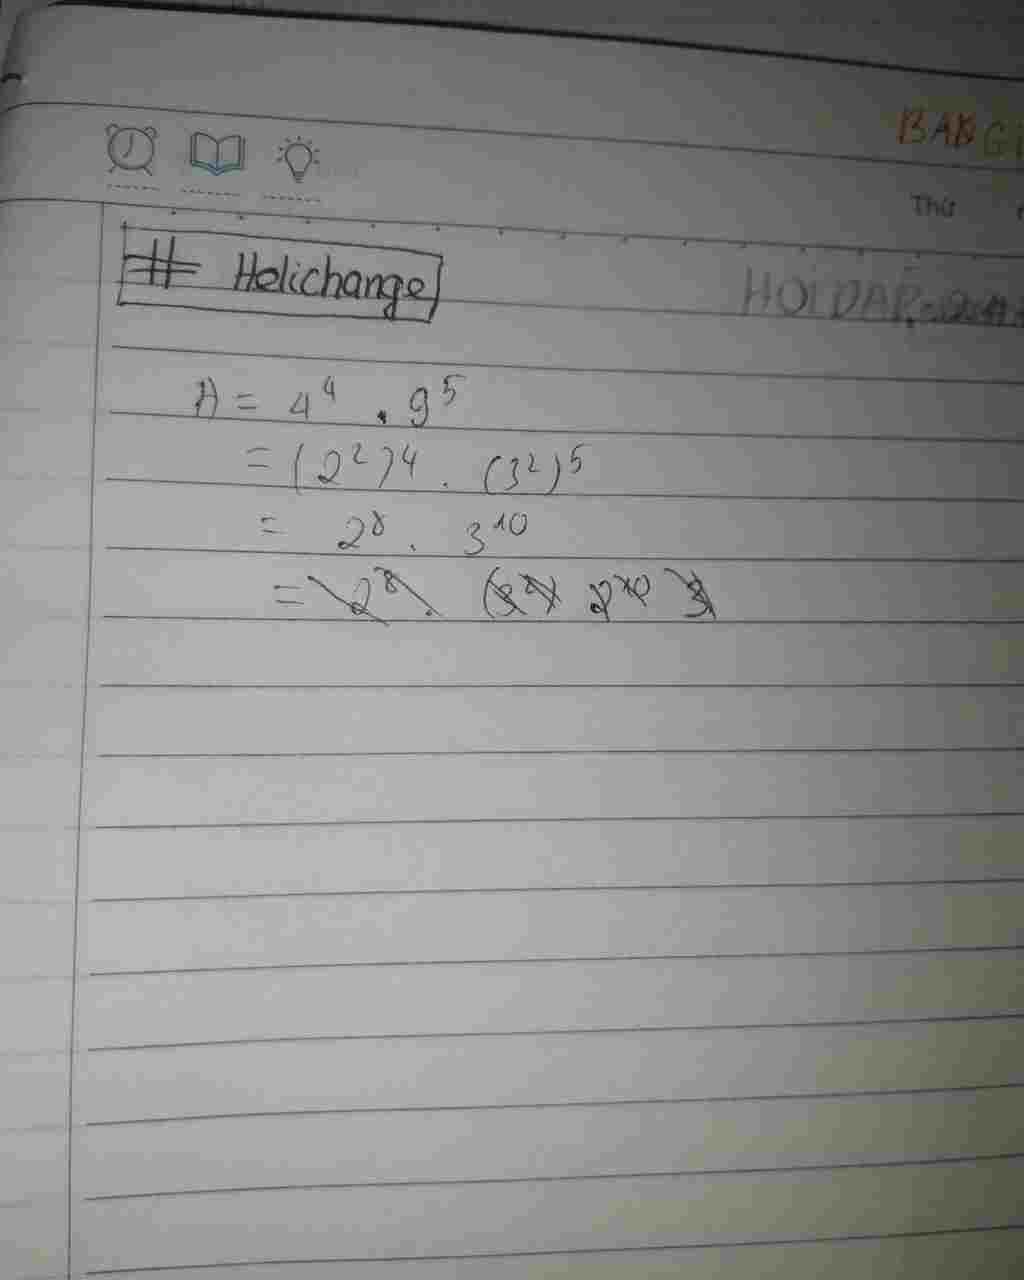 BAB
Thứ
# Helichange
HOIDAP
A = 4⁴ . 9⁵
= (2²)⁴ . (3²)⁵
= 2⁸ . 3¹⁰
=